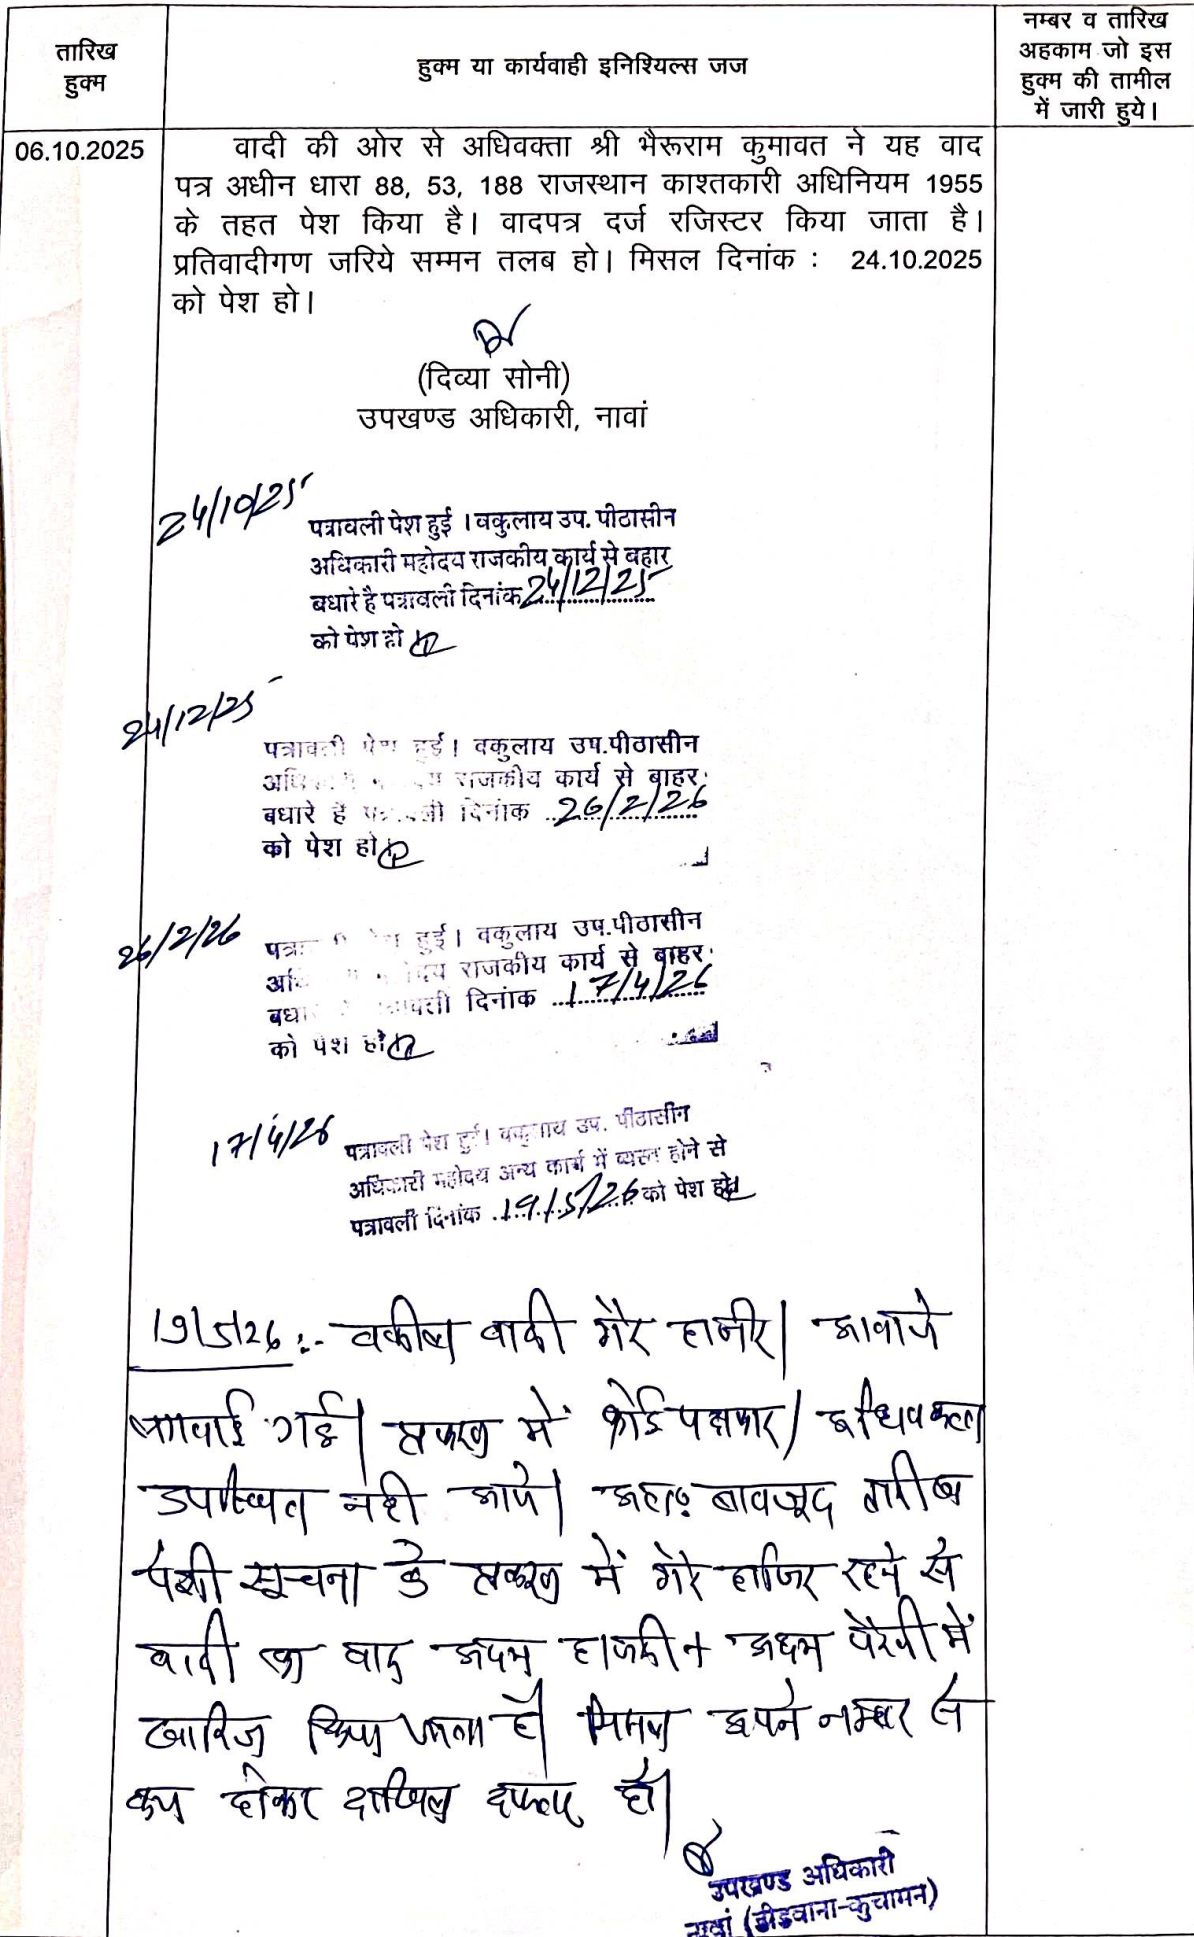 तारिख
हुक्म
हुक्म या कार्यवाही इनिश्यिल्स जज
नम्बर व तारिख
अहकाम जो इस
हुक्म की तामील
में जारी हुये।
06.10.2025
वादी की ओर से अधिवक्ता श्री भैरूराम कुमावत ने यह वाद
पत्र अधीन धारा 88, 53, 188 राजस्थान काश्तकारी अधिनियम 1955
के तहत पेश किया है। वादपत्र दर्ज रजिस्टर किया जाता है।
प्रतिवादीगण जरिये सम्मन तलब हो। मिसल दिनांक : 24.10.2025
को पेश हो।
(दिव्या सोनी)
उपखण्ड अधिकारी, नावां
24/10/25
पत्रावली पेश हुई । वकुलाय उप. पीठासीन
अधिकारी महोदय राजकीय कार्य से बहार
बधारे है पत्रावली दिनांक 24/12/25
को पेश हो
24/12/25
पत्रावली पेश हुई। वकुलाय उप.पीठासीन
राजकीय कार्य से बाहर
बधारे है दिनांक 26/2/26
को पेश हो
26/2/26
हुई। वकुलाय उप.पीठासीन
राजकीय कार्य से बाहर
दिनांक 17/4/26
को पेश हो
17/4/26
पत्रावली पेश हुई। वकुलाय उप. पीठासीन
अधिकारी महोदय अन्य कार्य में व्यस्त होने से
पत्रावली दिनांक 19/5/26 को पेश हो
19/5/26 :- वकील वादी गैर हाजीर। आवाजे
लगवाई गई। प्रकरण में कोई पक्षकार/ अधिवक्ता
उपस्थित नही आये। अतः बावजूद तारीख
पेशी सूचना के प्रकरण में गैर हाजिर रहने से
वादी का वाद अदम हाजरी व अदम पैरवी में
खारिज किया जाता है। मिसल अपने नम्बर से
कम होकर दाखिल दफ्तर हो।
उपखण्ड अधिकारी
नावां (डीडवाना-कुचामन)